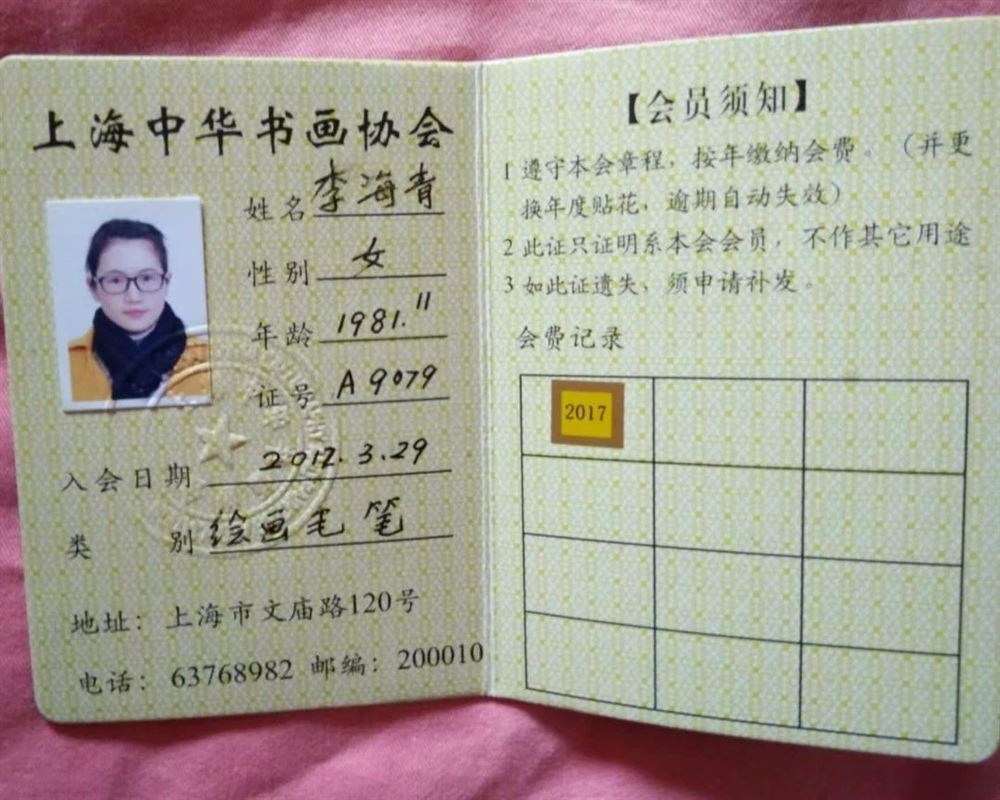 上海中华书画协会
姓名 李海青
性别 女
年龄 1981.11
证号 A9079
入会日期 2012.3.29
类别 绘画毛笔
地址：上海市文庙路120号
电话：63768982 邮编：200010
【会员须知】
1 遵守本会章程，按年缴纳会费。（并更
换年度贴花，逾期自动失效）
2 此证只证明系本会会员，不作其它用途
3 如此证遗失、须申请补发。
会费记录
2017